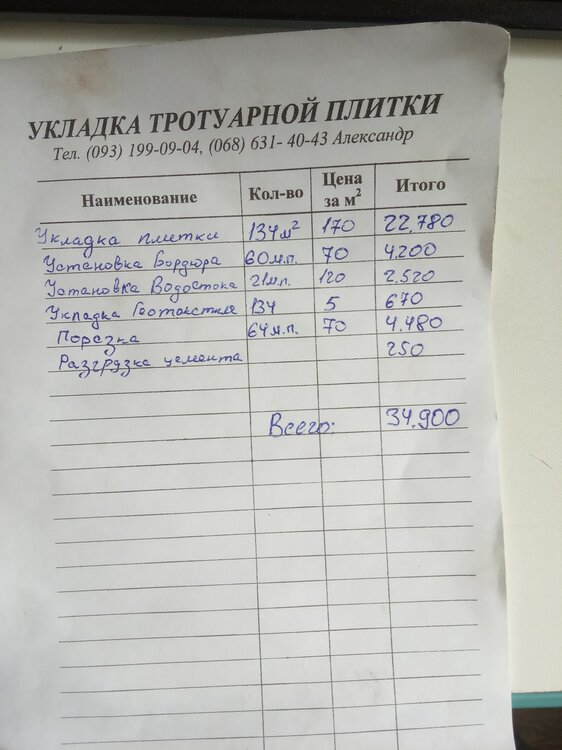 УКЛАДКА ТРОТУАРНОЙ ПЛИТКИ
Тел. (093) 199-09-04, (068) 631- 40-43 Александр
Наименование Кол-во Цена за м² Итого
Укладка плитки 134 м² 170 22,780
Установка Бордюра 60м.п. 70 4.200
Установка Водостока 21м.п. 120 2.520
Укладка Геотокстиля 134 5 670
Порезка 64м.п. 70 4.480
Разгрузка цемента 250
Всего: 34,900